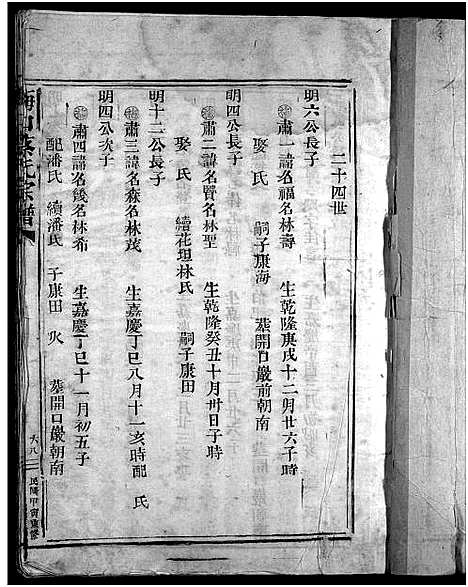 二十四世
明六公長子
肅一諱名福名林壽 生乾隆庚戌十二月廿六子時
娶 氏 嗣子康海 葬開口嚴前朝南
明四公長子
肅二諱名賢名林聖 生乾隆癸丑十月卅日子時
娶 氏 續花坦林氏 嗣子康田
明十二公長子
肅三諱名森名林茂 生嘉慶丁巳八月十一亥時配 氏
明四公次子
肅四諱名餞名林希 生嘉慶丁巳十一月初五子
配潘氏 續潘氏 子康田 火 葬開口嚴朝南
氏宗譜
大八
民國甲寅重修